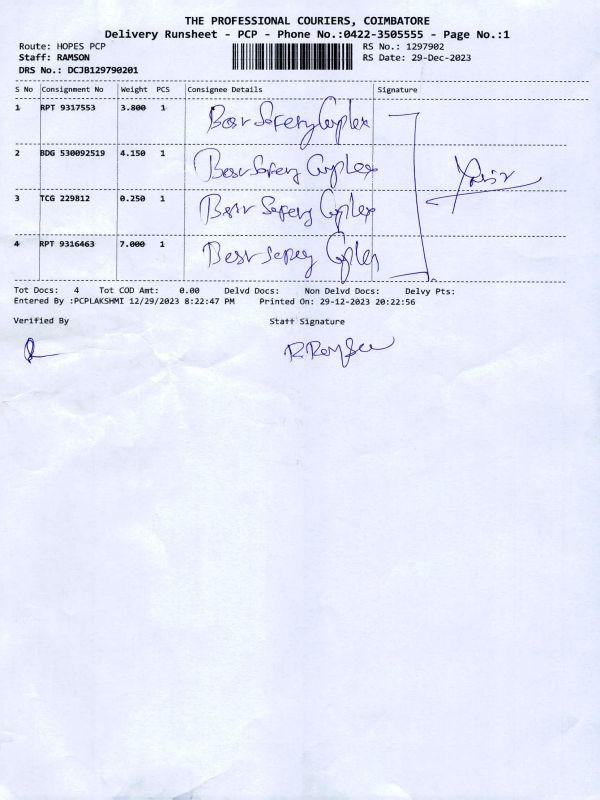 THE PROFESSIONAL COURIERS, COIMBATORE
Delivery Runsheet - PCP - Phone No.:0422-3505555 - Page No.:1
Route: HOPES PCP RS No.: 1297902
Staff: RAMSON RS Date: 29-Dec-2023
DRS No.: DCJB129790201
S No Consignment No Weight PCS Consignee Details Signature
1 RPT 9317553 3.800 1 Best Safety Complex
2 BDG 530092519 4.150 1 Best Safety Complex
3 TCG 229812 0.250 1 Best Safety Complex
4 RPT 9316463 7.000 1 Best Safety
Tot Docs: 4 Tot COD Amt: 0.00 Delvd Docs: Non Delvd Docs: Delvy Pts:
Entered By :PCPLAKSHMI 12/29/2023 8:22:47 PM Printed On: 29-12-2023 20:22:56
Verified By Staff Signature